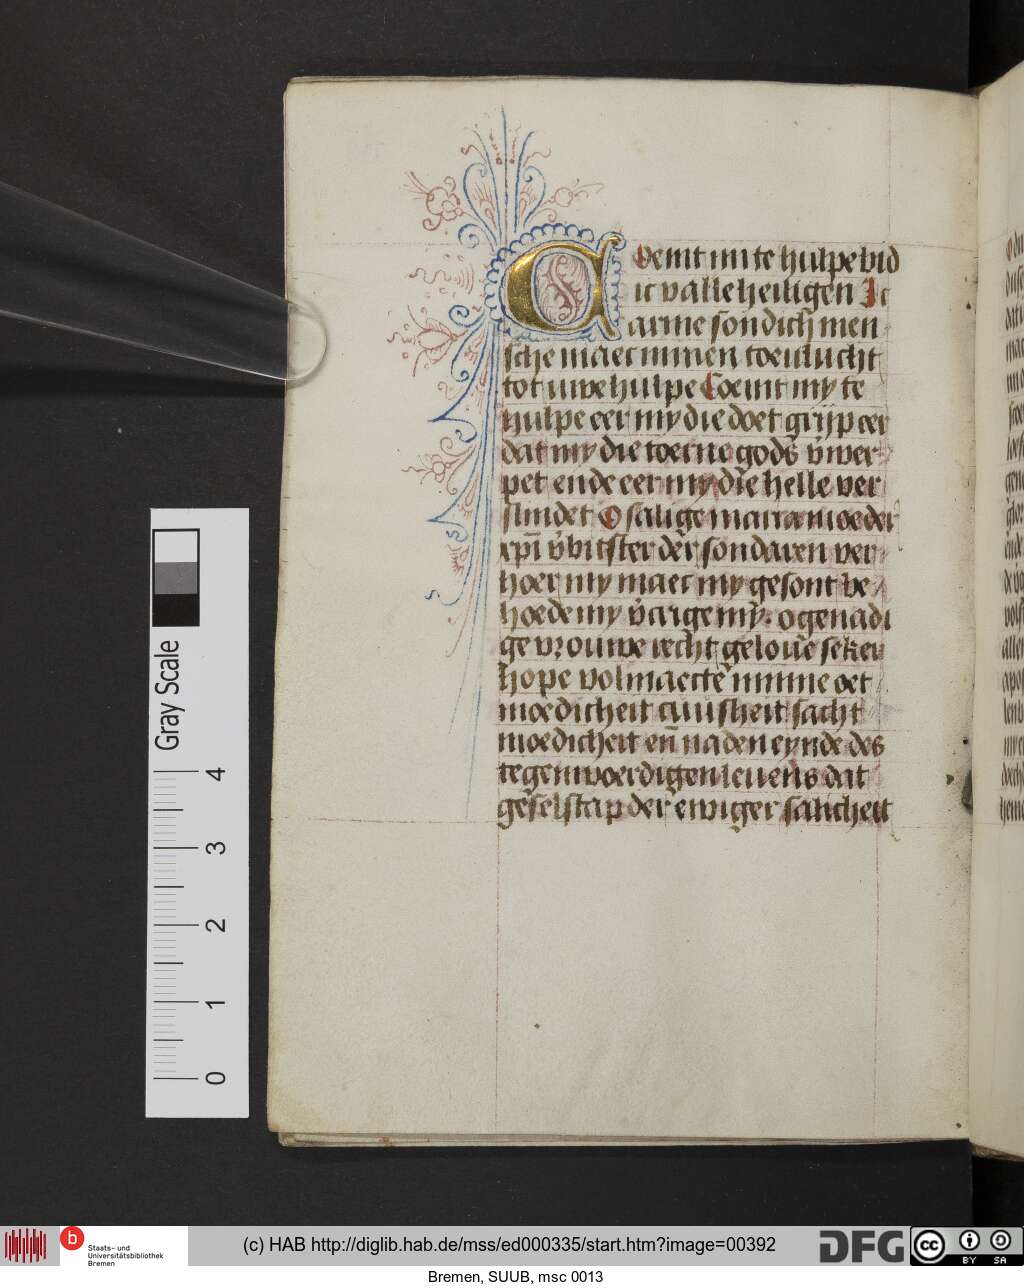 Coemt mi te hulpe bid
ic v alle heiligen Ic
arme sondich men
sche maec minen toevlucht
tot uwe hulpe Coemt my te
hulpe eer my die doet grijp eer
dat my die toerne gods v̄wer
pet ende eer my die helle ver
slindet O salige maria moeder
xp̄i v̄bitster der sondaren ver
hoer my maec my gesont be
hoede my v̄arge my. o genadi
ge vrouwe recht geloue seker
hope volmaecte minne oet
moedicheit cuusheit sacht
moedicheit en̄ na den eynde des
tegenwoerdigen leuens dat
geselscap der ewiger salicheit
Gray Scale
4
3
2
1
0
b Staats- und
Universitätsbibliothek
Bremen
(c) HAB http://diglib.hab.de/mss/ed000335/start.htm?image=00392
DFG
cc BY SA
Bremen, SUUB, msc 0013